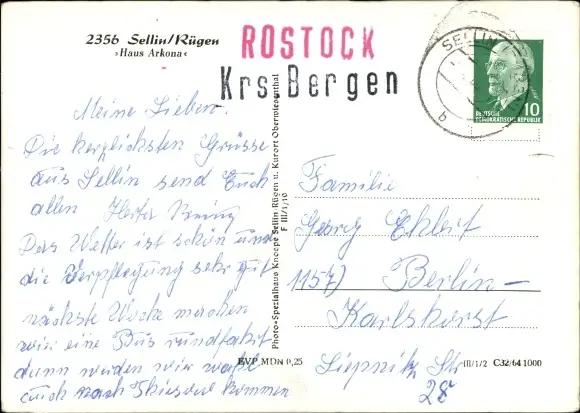 2356 Sellin/Rügen
›Haus Arkona‹
ROSTOCK
Krs Bergen
SELLIN
b
10
DEUTSCHE
DEMOKRATISCHE REPUBLIK
Meine Lieben.
Die herzlichsten Grüsse
aus Sellin send Euch
allen Herta
Das Wetter ist schön und
die Verpflegung sehr gut
nächste Woche machen
wir eine Bus rundfahrt
dann werden wir wohl
auch nach kommen
Photo-Spezialhaus Knospe Sellin-Rügen u. Kurort Oberwiesenthal
F III/1/10
Familie
Georg Ekleit
1157) Berlin-
Karlshorst
Liepnitz Str
28
EVP MDN 0,25
III/1/2 C32/64 1000